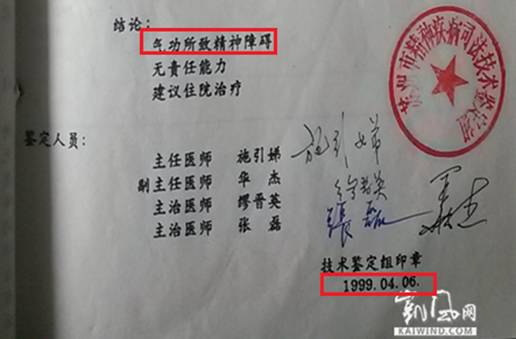 结论：
气功所致精神障碍
无责任能力
建议住院治疗
鉴定人员：
主任医师 施引娣
副主任医师 华杰
主治医师 缪晋英
主治医师 张磊
施引娣
张磊
华杰
市精神疾病司法技术鉴定组
技术鉴定组印章
1999.04.06.
凯风网
KAIWIND.COM